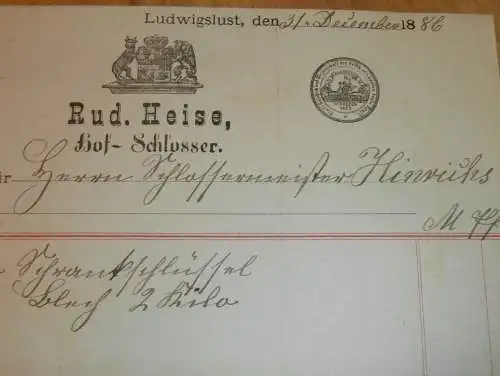 Ludwigslust, den 31. December 1886
Rud. Heise,
Hof-Schlosser.
ür Herrn Schlossermeister Hinrichs
M
Schrankschlüssel
Blech 2 Kilo